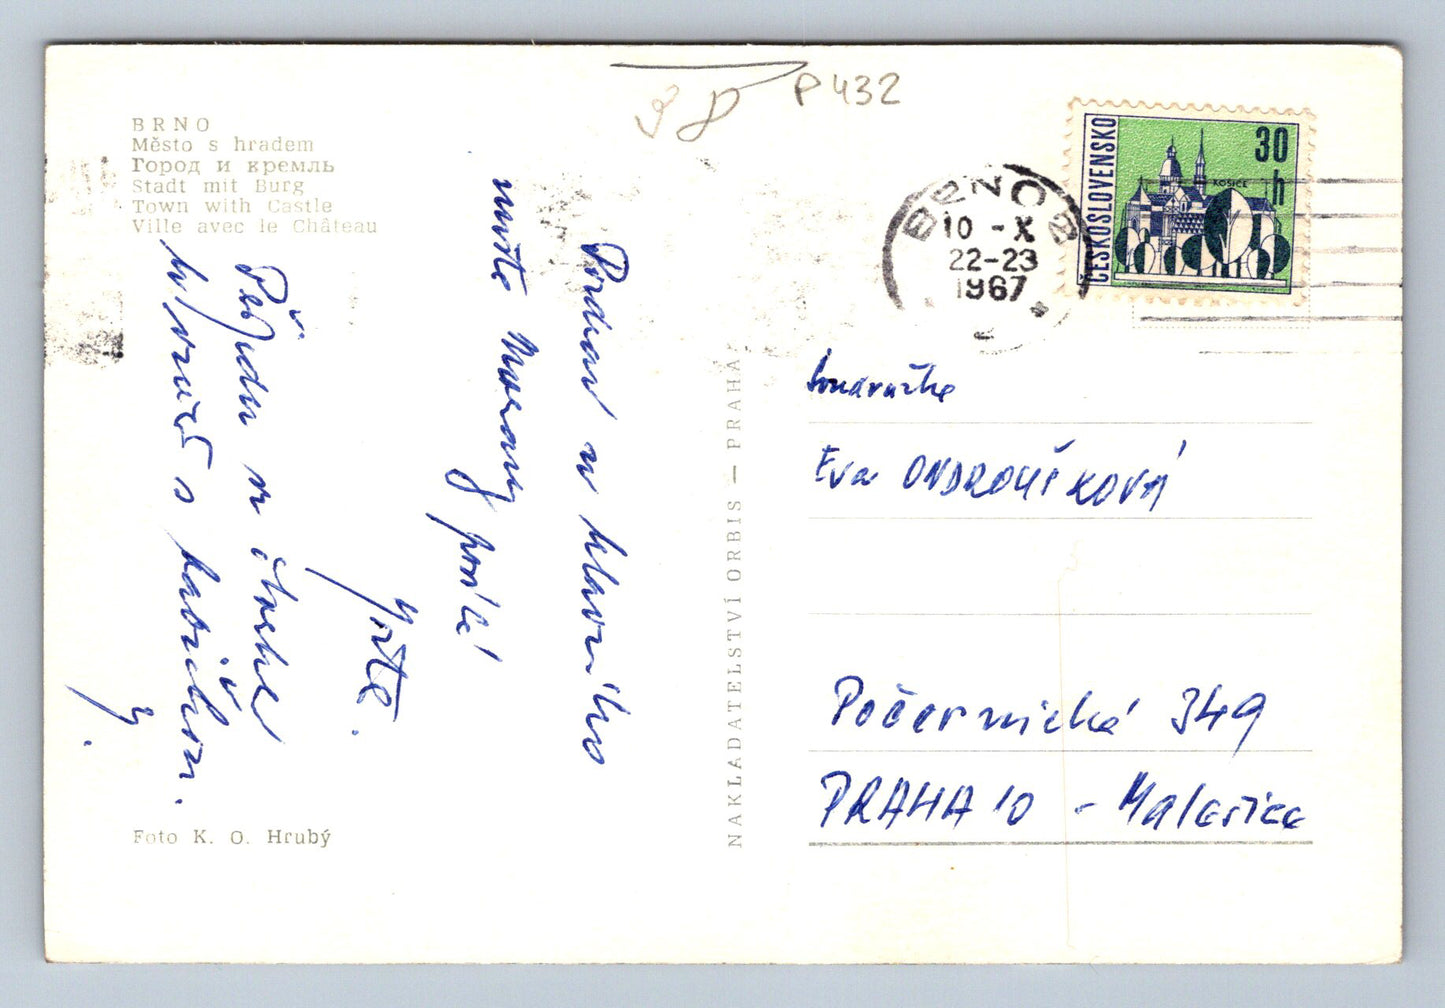 P 432
BRNO
Město s hradem
Город и кремль
Stadt mit Burg
Town with Castle
Ville avec le Château
BRNO 2
10 -X
22-23
1967
ČESKOSLOVENSKO
30
h
KOŠICE
Pozdrav z hlavního
města Moravy
posílá
s kabátkem.
Soudružka
Eva ONDROUŠKOVÁ
Počernická 349
PRAHA 10 - Malešice
NAKLADATELSTVÍ ORBIS — PRAHA
Foto K. O. Hrubý